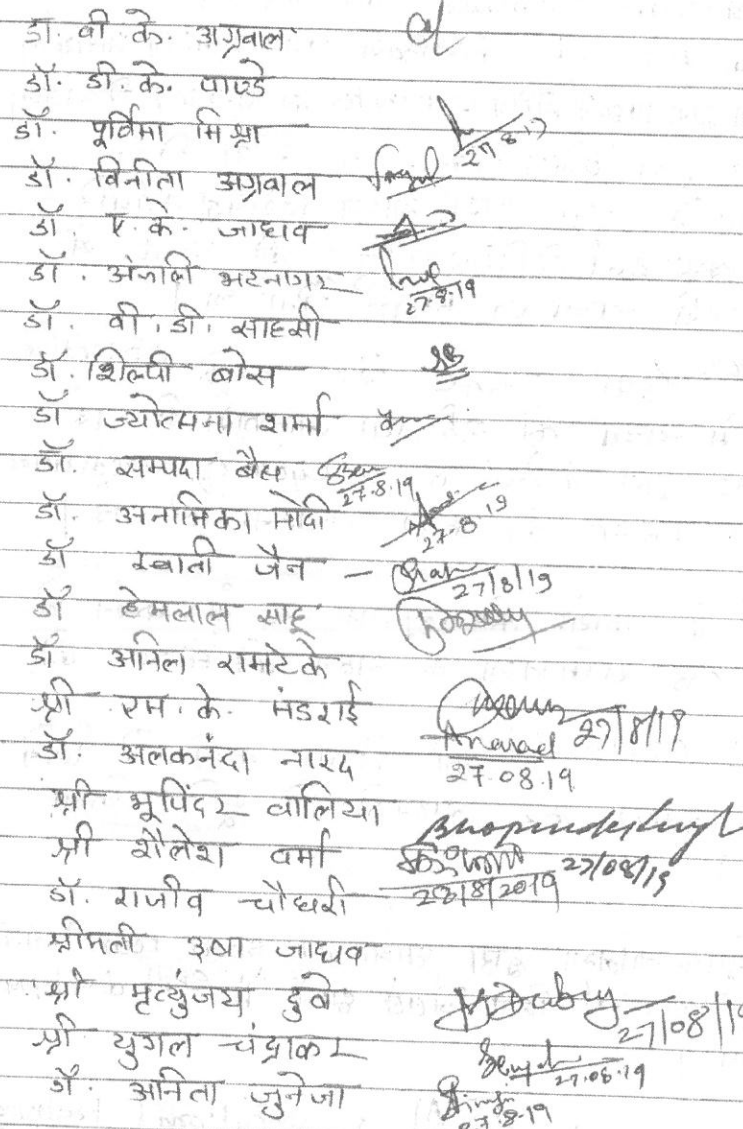 डॉ. वी. के. अग्रवाल
डॉ. डी. के. पाण्डे
डॉ. पूर्णिमा मिश्रा 27/8/19
डॉ. विनीता अग्रवाल
डॉ. ए. के. जाधव
डॉ. अंजली भटनागर 27.8.19
डॉ. वी. डी. साहसी
डॉ. शिल्पी बोस SB
डॉ ज्योत्सना शर्मा
डॉ. सम्पदा बैस 27.8.19
डॉ. अनामिका मोदी 27-8-19
डॉ स्वाती जैन - 27/8/19
डॉ हेमलाल साहू
डॉ अनिल रामटेके
श्री एम. के. मंडराई 27/8/19
डॉ. अलकनंदा नारद Anarad 27.08.19
श्री भूपिंदर वालिया
श्री शैलेश वर्मा 27/08/19
डॉ. राजीव चौधरी 28/8/2019
श्रीमती उषा जाधव
श्री मृत्युंजया दुबे 27/08/19
श्री युगल चंद्राकर 27.08.19
डॉ. अनिता जुनेजा 27.8.19